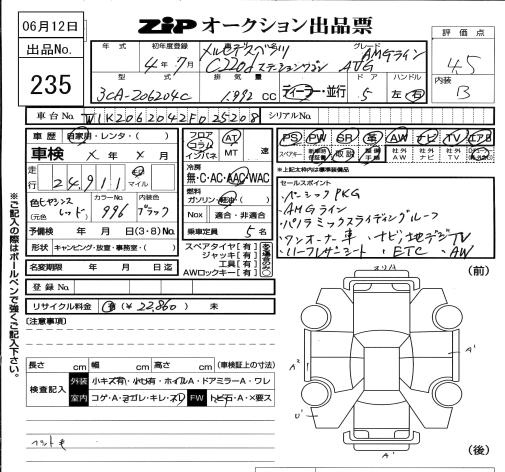 06月12日
ZIP オークション出品票
出品No.
235
評価点
4.5
内装
B
年式 初年度登録 車名 グレード
4年7月
メルセデスベンツ
C220d ステーションワゴン
AMGライン
AVG
型式 排気量 ドア ハンドル
3CA-206204C 1,992 cc ディーラー・並行 5 左・右
車台No. W1K2062042F025208 シリアルNo.
車歴 自家用・レンタ・( )
車検 × 年 × 月
走行 24,911 km マイル
色 ヒヤシンスレッド
(元色)
カラーNo. 996
内装色 ブラック
予備検 年 月 日(3・8)No.
形状 キャンピング・放送・事務室・( )
名変期限 年 月 日
登録No.
リサイクル料金 有(¥ 22,860) 未
フロア
コラム
インパネ
AT
MT 速
冷房
無・C・AC・AAC・WAC
燃料
ガソリン・軽油・( )
Nox 適合・非適合
乗車定員 5名
スペアタイヤ[有]
ジャッキ[有]
工具[有]
AWロックキー[有]
PS PW SR 革 AW ナビ TV エアB
スペアキー 取説 社外AW 社外ナビ 社外TV
*上記太枠内は標準装備品
セールスポイント
・ベーシックPKG
・AMGライン
・パノラミックスライディングルーフ
・ワンオーナー車 ・ナビ/地デジTV
・ハーフレザーシート ・ETC ・AW
※ご記入の際はボールペンで強くご記入下さい。
[注意事項]
長さ cm 幅 cm 高さ cm (車検証上の寸法)
検査記入 外装 小キズ有・小凹有・ホイルA・ドアミラーA・ワレ
室内 コゲ・A・ヨゴレ・キレ・スレ FW トビ石・A・×要ス
(前)
A¹
A²
U¹
A¹
(後)